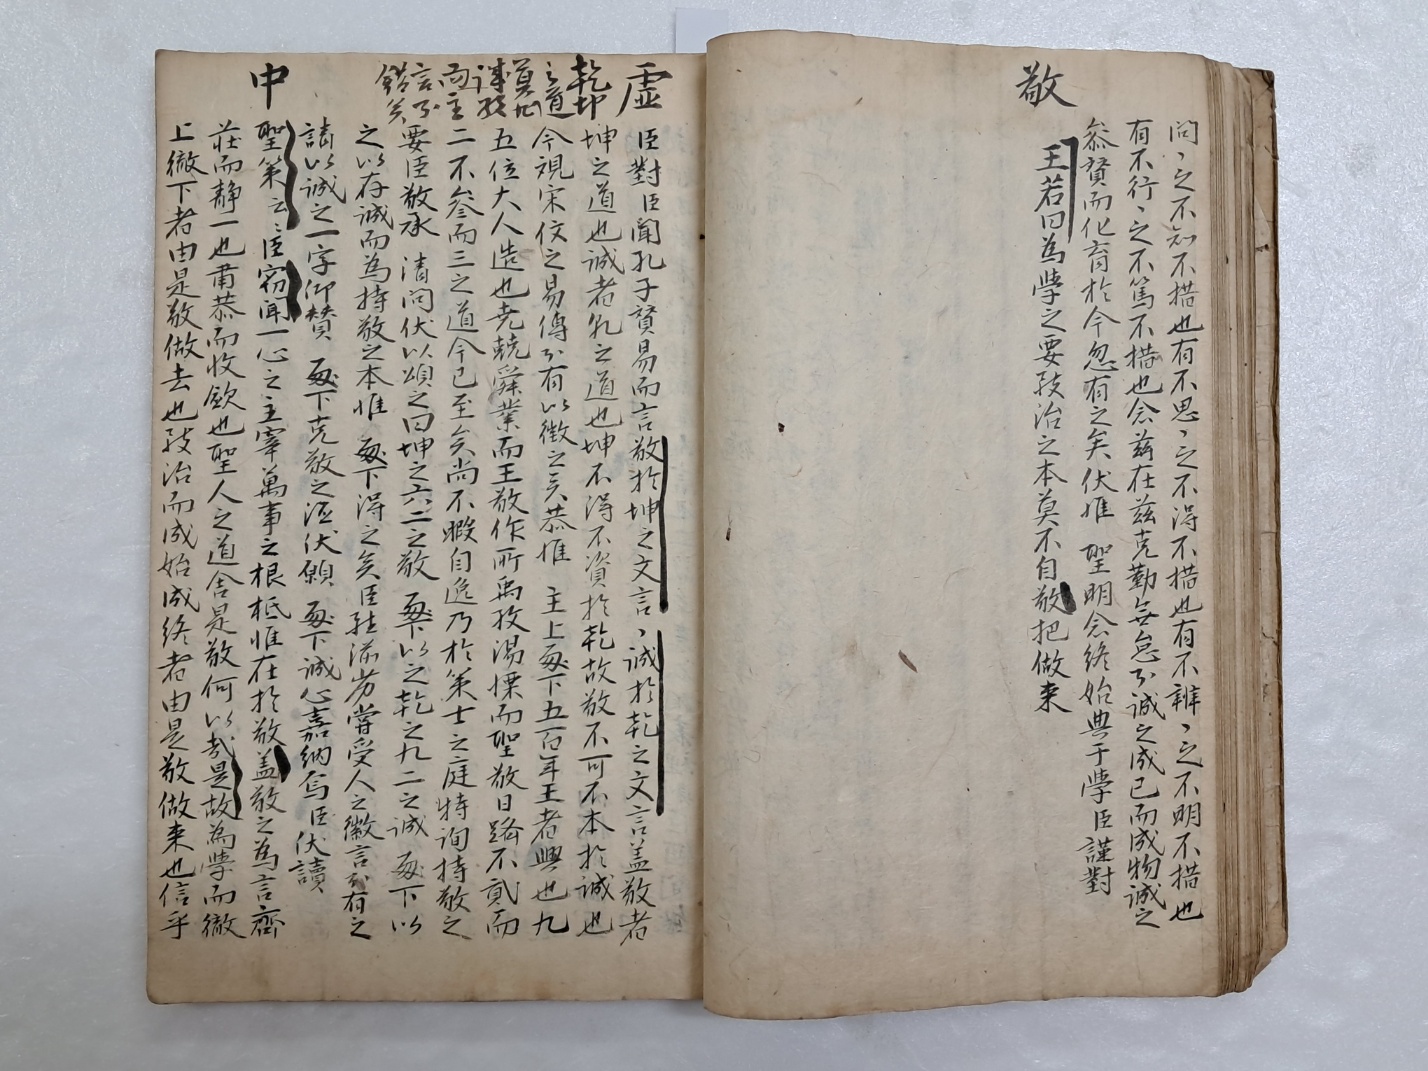 敬
問〻之不知不措也有不思〻之不得不措也有不辨〻之不明不措也
有不行〻之不篤不措也念茲在茲克勤無怠以誠之成己而成物誠之
叅賛而化育於今忽有之矣伏惟 聖明念終始典于學臣謹對
王若曰為學之要致治之本莫不自敬把做来
虛
乾坤
之道
莫
誠
而主
言不
錯矣
臣對臣聞孔子賛易而言敬於坤之文言〻誠於乾之文言盖敬者
坤之道也誠者乾之道也坤不得不資於乾故敬不可不本於誠也
今視宋佼之易傳亦有以徵之矣恭惟 主上殿下五百年王者興也九
五位大人造也堯兢舜業而王敬作所禹孜湯慄而聖敬日躋不貳而
二不叅而三之道今已至矣尚不暇自逸乃於策士之庭特詢持敬之
要臣敬承 清問伏以頌之曰坤之六二之敬 殿下以之乾之九二之誠 殿下以
之以存誠而為持敬之本惟 殿下得之矣臣 甞受人之徽言亦有之
請以誠之一字仰賛 殿下克敬之 伏願 殿下誠心嘉納焉臣伏讀
中
聖策云〻臣窃聞一心之主宰萬事之根柢惟在於敬盖敬之為言齊
莊而静一也肅恭而收歛也聖人之道舍是敬何以哉是故為學而徹
上徹下者由是敬做去也致治而成始成終者由是敬做来也信乎